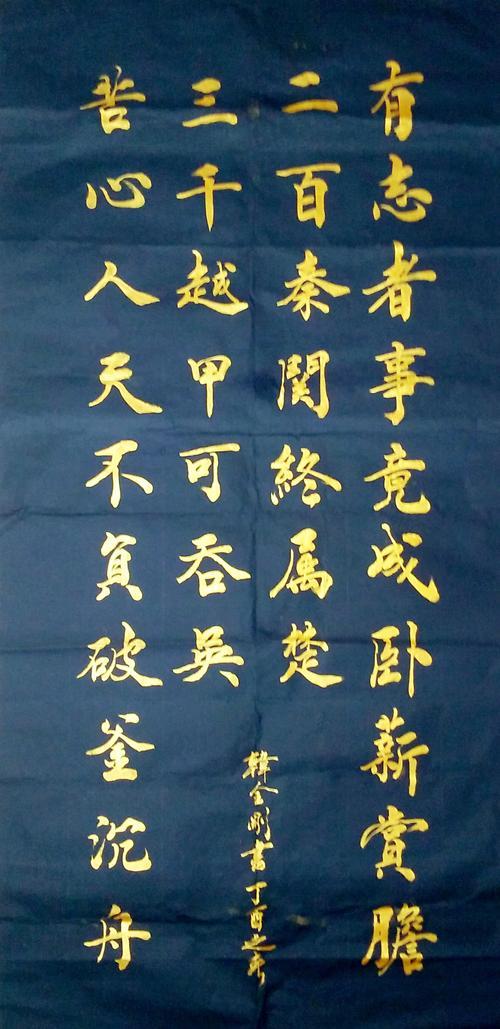 有志者事竟成卧薪賞膽
二百秦関終属楚
韓金剛書丁酉之
三千越甲可吞吳
苦心人天不負破釜沉舟